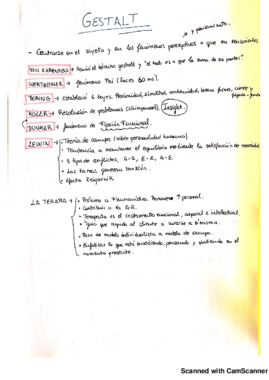 GESTALT
y pensamiento.
- Centrarse en el sujeto y en los fenómenos perceptivos + que en sensoriales
VON EHRENFELS → acuñó el término gestalt y "el todo es + que la suma de sus partes".
WERTHEIMER → fenómeno Phi (luces 60 ms).
→ estableció 6 leyes. Proximidad, similitud, continuidad, buena forma, cierre y
figura-fondo
KÖLER → Resolución de problemas (chimpancés). Insight.
DUNKER → fenómeno de Fijación Funcional.
LEWIN → Teoría de campo (sobre personalidad humana)
· Tendencia a mantener el equilibrio mediante la satisfacción de necesidad
· 3 tipos de conflictos, A-A, E-E, A-E.
· Las tareas generan tensión.
· Efecto Zeigarnik
LA TERAPIA → · Próxima a Humanística
· Contribuir a la
· Terapeuta es el instrumento emocional, corporal e intelectual.
· guía que ayuda al cliente a curarse a sí mismo.
· Pasa de modelo individualista a modelo de campo.
· Enfatizar lo que está sucediendo, pensando y sintiendo en el
momento presente.
Scanned with CamScanner